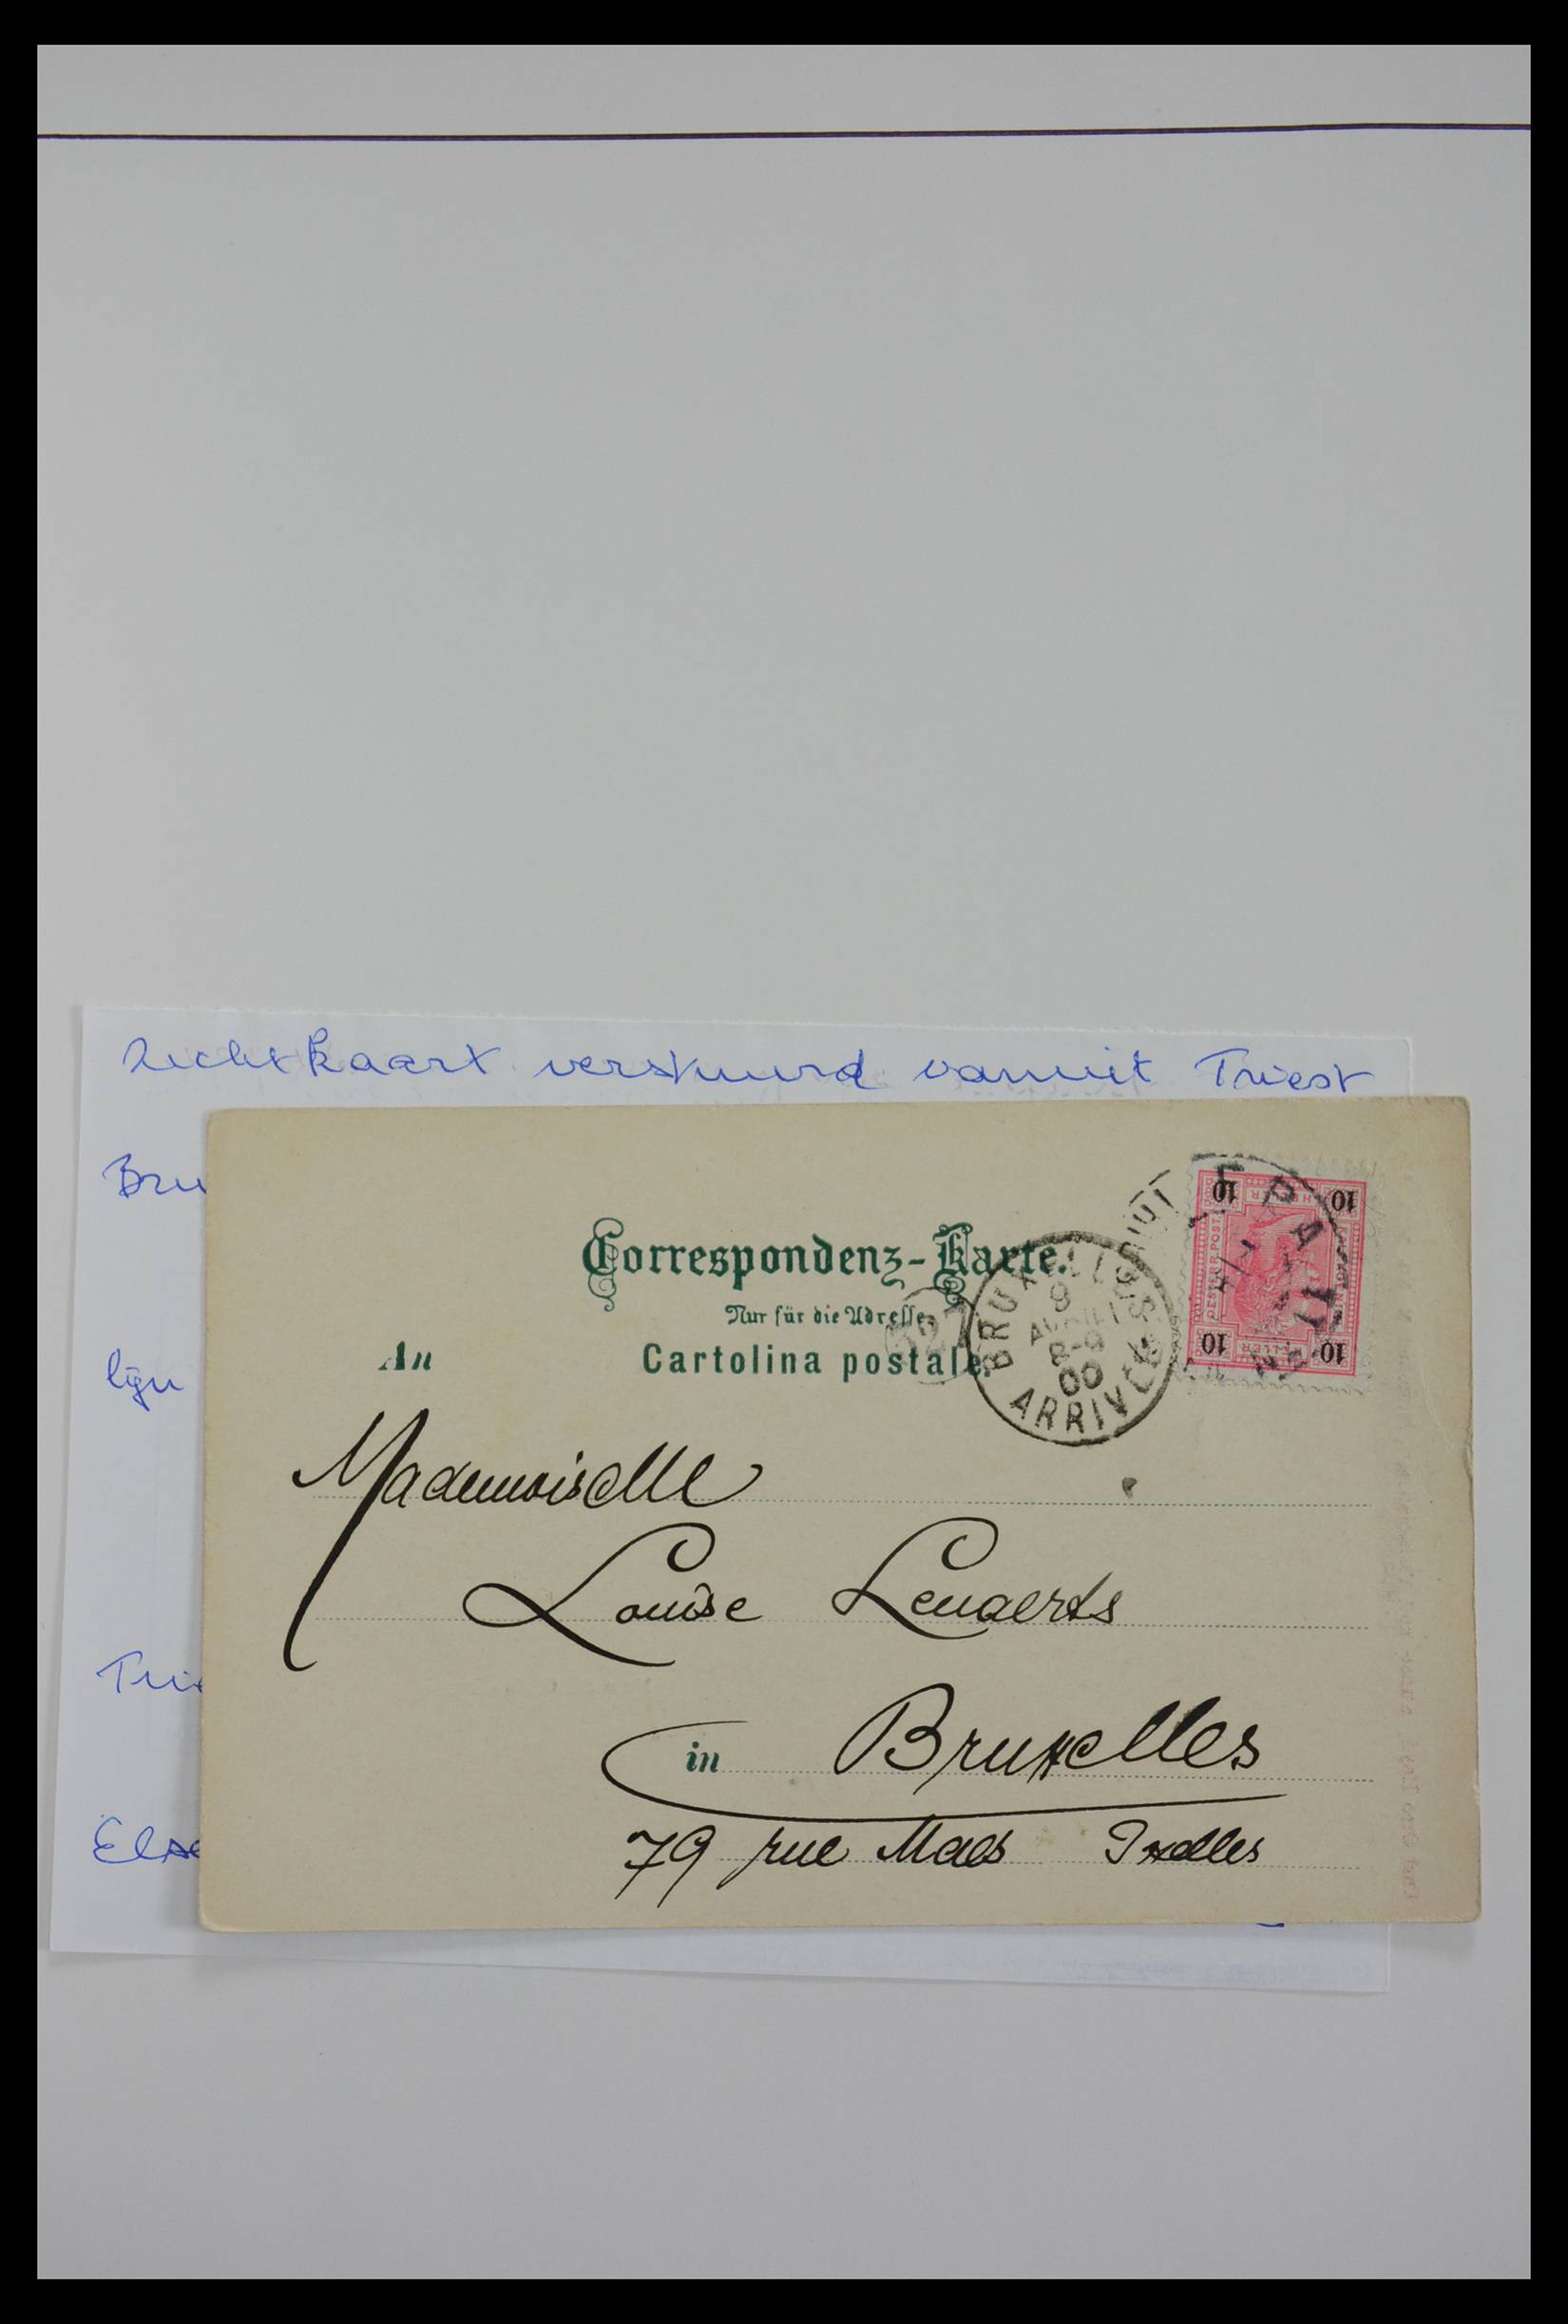 kaart verstuurd vanuit Triest
Bru
lijn
Else
Correspondenz-Karte.
Nur für die Adresse.
An
Cartolina postale.
327
BRUXELLES
8
AVRIL
8-9
00
ARRIVÉE
10
10
OESTERR.POST
HELLER
10
10
Mademoiselle
Louise Lenaerts
in Bruxelles
79 rue Maes Ixelles